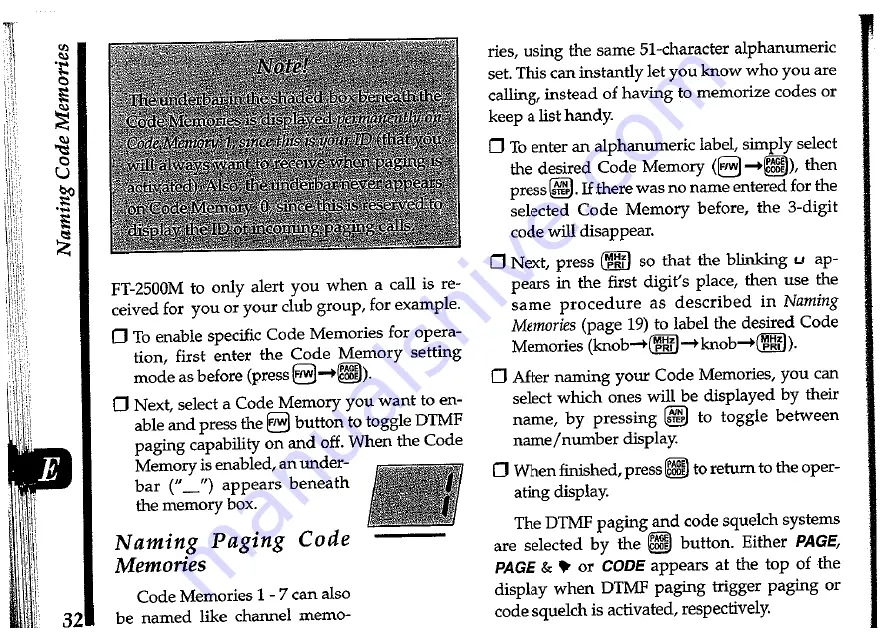 Naming Code Memories
Note!
The underbar in the shaded box beneath the
Code Memories is displayed permanently on
Code Memory 1, since this is your ID (that you
will always want to receive when paging is
activated). Also, the underbar never appears
on Code Memory 0, since this is reserved to
display the ID of incoming paging calls.
FT-2500M to only alert you when a call is re-
ceived for you or your club group, for example.
❒ To enable specific Code Memories for opera-
tion, first enter the Code Memory setting
mode as before (press F/W → PAGE CODE).
❒ Next, select a Code Memory you want to en-
able and press the F/W button to toggle DTMF
paging capability on and off. When the Code
Memory is enabled, an under-
bar ("_") appears beneath
the memory box.
1
Naming Paging Code
Memories
Code Memories 1 - 7 can also
be named like channel memo-
E
32
ries, using the same 51-character alphanumeric
set. This can instantly let you know who you are
calling, instead of having to memorize codes or
keep a list handy.
❒ To enter an alphanumeric label, simply select
the desired Code Memory (F/W → PAGE CODE), then
press A/N STEP. If there was no name entered for the
selected Code Memory before, the 3-digit
code will disappear.
❒ Next, press (MHz PRI) so that the blinking u ap-
pears in the first digit's place, then use the
same procedure as described in Naming
Memories (page 19) to label the desired Code
Memories (knob→(MHz PRI)→knob→(MHz PRI)).
❒ After naming your Code Memories, you can
select which ones will be displayed by their
name, by pressing A/N STEP to toggle between
name/number display.
❒ When finished, press PAGE CODE to return to the oper-
ating display.
The DTMF paging and code squelch systems
are selected by the PAGE CODE button. Either PAGE,
PAGE & or CODE appears at the top of the
display when DTMF paging trigger paging or
code squelch is activated, respectively.
manualshive.com